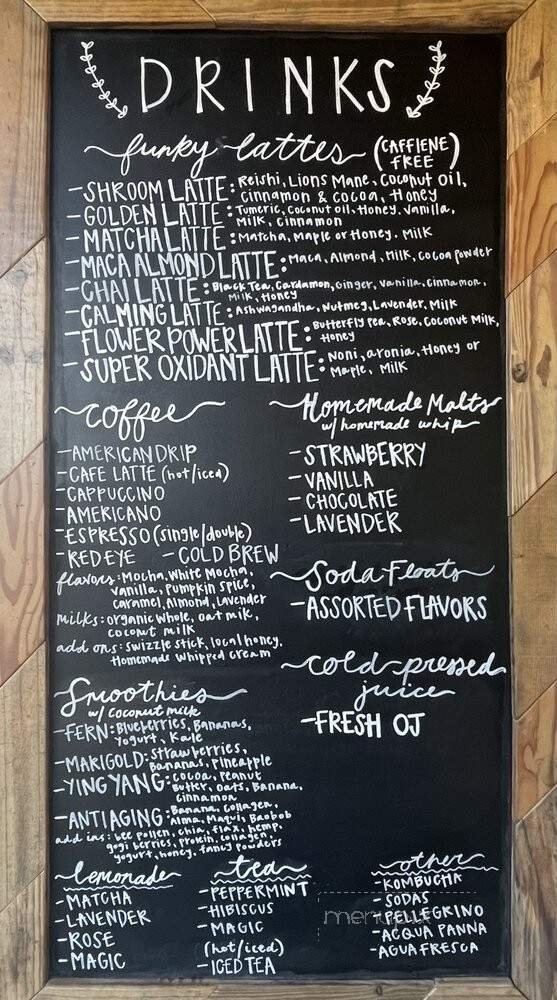 DRINKS
funky lattes (CAFFIENE FREE)
-SHROOM LATTE: Reishi, Lions Mane, Coconut Oil,
Cinnamon & Cocoa, Honey
-GOLDEN LATTE: Tumeric, Coconut oil, Honey, Vanilla,
Milk, Cinnamon
-MATCHA LATTE: Matcha, Maple or Honey, Milk
-MACA ALMOND LATTE: Maca, Almond, Milk, Cocoa Powder
-CHAI LATTE: Black Tea, Cardamon, Ginger, Vanilla, Cinnamon,
Milk, Honey
-CALMING LATTE: Ashwagandha, Nutmeg, Lavender, Milk
-FLOWER POWER LATTE: Butterfly Pea, Rose, Coconut Milk,
Honey
-SUPER OXIDANT LATTE: Noni, aronia, Honey or
Maple, Milk
coffee
-AMERICAN DRIP
-CAFE LATTE (hot/iced)
-CAPPUCCINO
-AMERICANO
-ESPRESSO (single/double)
-RED EYE -COLD BREW
flavors: Mocha, White Mocha,
Vanilla, Pumpkin Spice,
Caramel, Almond, Lavender
milks: organic whole, oat milk,
coconut milk
add ons: Swizzle stick, local honey,
Homemade whipped cream
Homemade Malts
w/ homemade whip
-STRAWBERRY
-VANILLA
-CHOCOLATE
-LAVENDER
Soda Floats
-ASSORTED FLAVORS
cold-pressed
juice
-FRESH OJ
Smoothies
w/ coconut milk
-FERN: Blueberries, Bananas,
Yogurt, Kale
-MARIGOLD: Strawberries,
Bananas, Pineapple
-YING YANG: Cocoa, Peanut
Butter, Oats, Banana,
Cinnamon
-ANTIAGING: Banana, Collagen,
Alma, Maqui, Baobob
add ins: bee pollen, chia, flax, hemp,
gogi berries, protein, collagen,
yogurt, honey, fancy powders
lemonade
-MATCHA
-LAVENDER
-ROSE
-MAGIC
tea
-PEPPERMINT
-HIBISCUS
-MAGIC
(hot/iced)
-ICED TEA
other
-KOMBUCHA
-SODAS
-PELLEGRINO
-ACQUA PANNA
-AGUA FRESCA